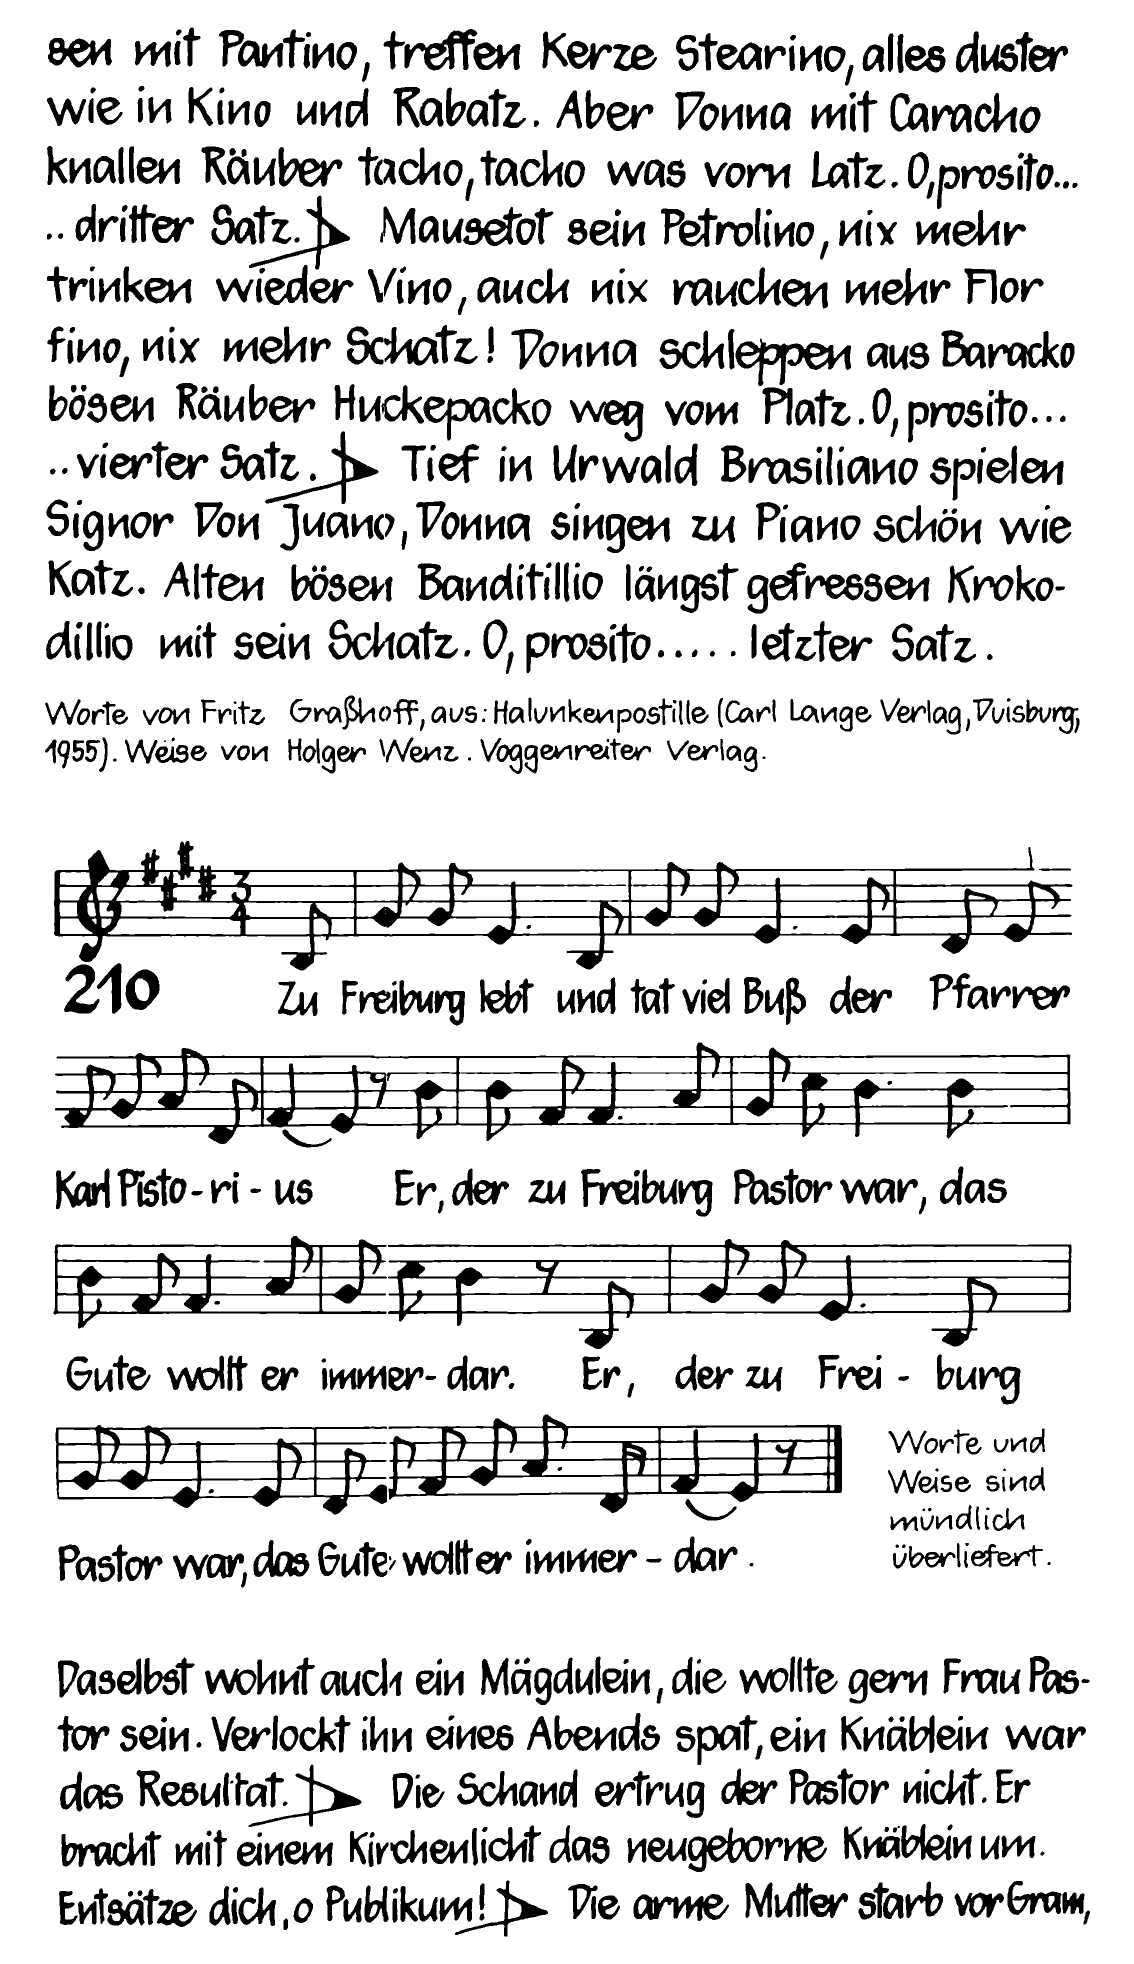 sen mit Pantino, treffen Kerze Stearino, alles duster
wie in Kino und Rabatz. Aber Donna mit Caracho
knallen Räuber tacho, tacho was vorn Latz. O, prosito...
.. dritter Satz. Mausetot sein Petrolino, nix mehr
trinken wieder Vino, auch nix rauchen mehr Flor
fino, nix mehr Schatz! Donna schleppen aus Baracko
bösen Räuber Huckepacko weg vom Platz. O, prosito...
.. vierter Satz. Tief in Urwald Brasiliano spielen
Signor Don Juano, Donna singen zu Piano schön wie
Katz. Alten bösen Banditillio längst gefressen Kroko-
dillio mit sein Schatz. O, prosito..... letzter Satz.
Worte von Fritz Graßhoff, aus: Halunkenpostille (Carl Lange Verlag, Duisburg,
1955). Weise von Holger Wenz. Voggenreiter Verlag.
3
4
210
Zu Freiburg lebt und tat viel Buß der Pfarrer
Karl Pisto-ri-us Er, der zu Freiburg Pastor war, das
Gute wollt er immer-dar. Er, der zu Frei-burg
Pastor war, das Gute wollt er immer-dar.
Worte und
Weise sind
mündlich
überliefert.
Daselbst wohnt auch ein Mägdulein, die wollte gern Frau Pas-
tor sein. Verlockt ihn eines Abends spat, ein Knäblein war
das Resultat. Die Schand ertrug der Pastor nicht. Er
bracht mit einem Kirchenlicht das neugeborne Knäblein um.
Entsätze dich, o Publikum! Die arme Mutter starb vor Gram,